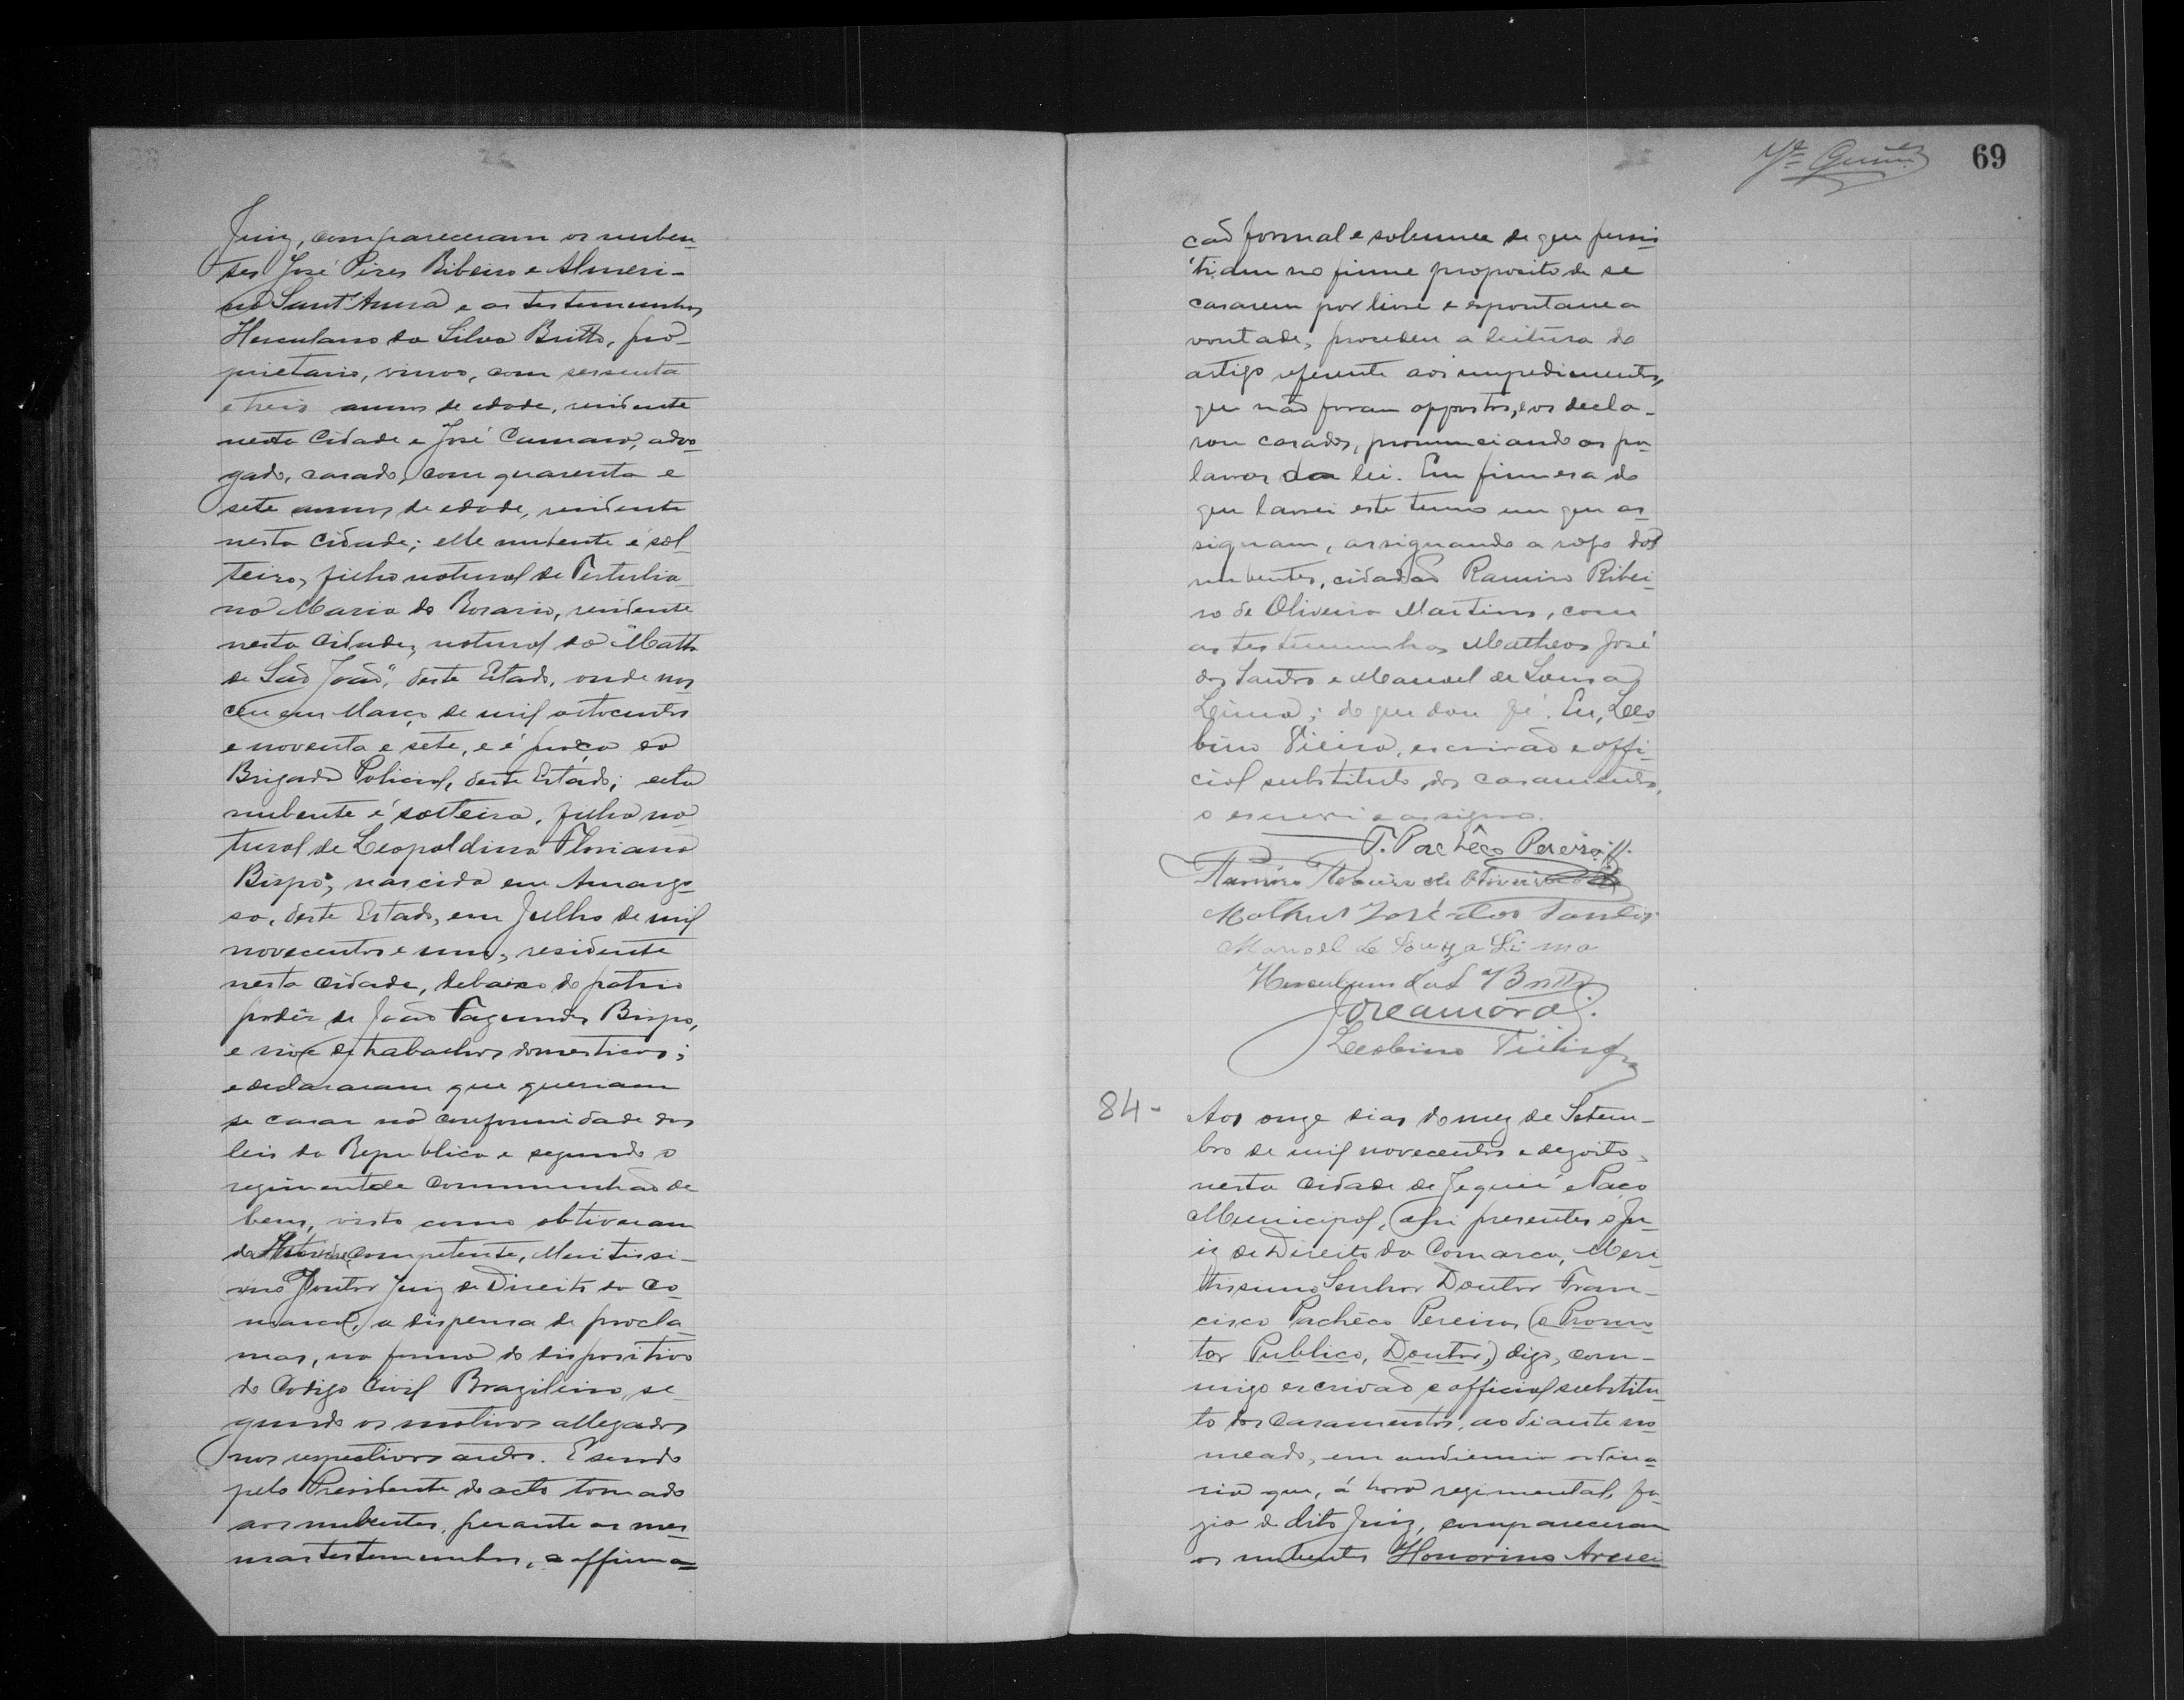 Juiz, compareceram os nuben-
tes José Pires Ribeiro e Almeri-
na Sant'Anna e as testemunhas
Herculano da Silva Britto, pro-
prietario, viuvo, com sessenta
e treis annos de edade, residente
nesta Cidade e José Camará, advo-
gado, casado, com quarenta e
sete annos de edade, residente
nesta Cidade; elle nubente é sol-
teiro, filho natural de Tertulia-
na Maria do Rosario, residente
nesta Cidade, natural da "Matta
de São João", deste Estado, onde nas-
ceu em Março de mil oitocentos
e noventa e sete, e é praça da
Brigada Policial, deste Estado; ella
nubente é solteira, filha na-
tural de Leopoldina Floriana
Bispo, nascida em Amargo-
sa, deste Estado, em Julho de mil
novecentos e um, residente
nesta Cidade, debaixo do patrio
poder de João Fagundes Bispo,
e vive de trabalhos domesticos;
e declararam que queriam
se casar na conformidade das
leis da Republica e segundo o
regimen de Communhão de
bens, visto como obtiveram
do competente, Meritissi-
mo Doutor Juiz de Direito da Co-
marca, a dispensa de procla-
mas, na forma do dispositivo
do Codigo Civil Brazileiro, se-
gundo os motivos allegados
nos respectivos autos. E sendo
pelo Presidente do acto tomado
aos nubentes, perante as mes-
mas testemunhas, a affirma-
69
ção formal e solemne de que persis-
tiam no firme proposito de se
casarem por livre e espontanea
vontade, procedeu a leitura do
artigo referente aos impedimentos,
que não foram oppostos, e os decla-
rou casados, pronunciando as pa-
lavras da lei. Em firmeza do
que lavrei este termo em que as-
signam, assignando a rogo dos
nubentes, cidadão Ramiro Ribei-
ro de Oliveira Martins, com
as testemunhas Matheos José
dos Santos e Manoel de Sousa
Lima; do que dou fé. Eu, Leo-
bino Vieira, escrivão e offi-
cial substituto dos casamentos,
o escrevi e assigno.
F. Pachêco Pereira
Ramiro Ribeiro de Oliveira
Matheus José dos Santos
Manoel de Souza Lima
Herculano da S Britto
José Camará.
Leobino Vieira
84-
Aos onze dias do mez de Setem-
bro de mil novecentos e dezoito,
nesta Cidade de Jequié e Paço
Municipal, ahi presentes o Ju-
iz de Direito da Comarca, Meri-
tissimo Senhor Doutor Fran-
cisco Pachêco Pereira (o Promo-
tor Publico, Doutor,) digo, com-
migo escrivão e official substitu-
to dos Casamentos, ao diante no-
meado, em audiencia ordina-
ria que, á hora regimental, fa-
zia o dito Juiz, compareceram
os nubentes Honorino